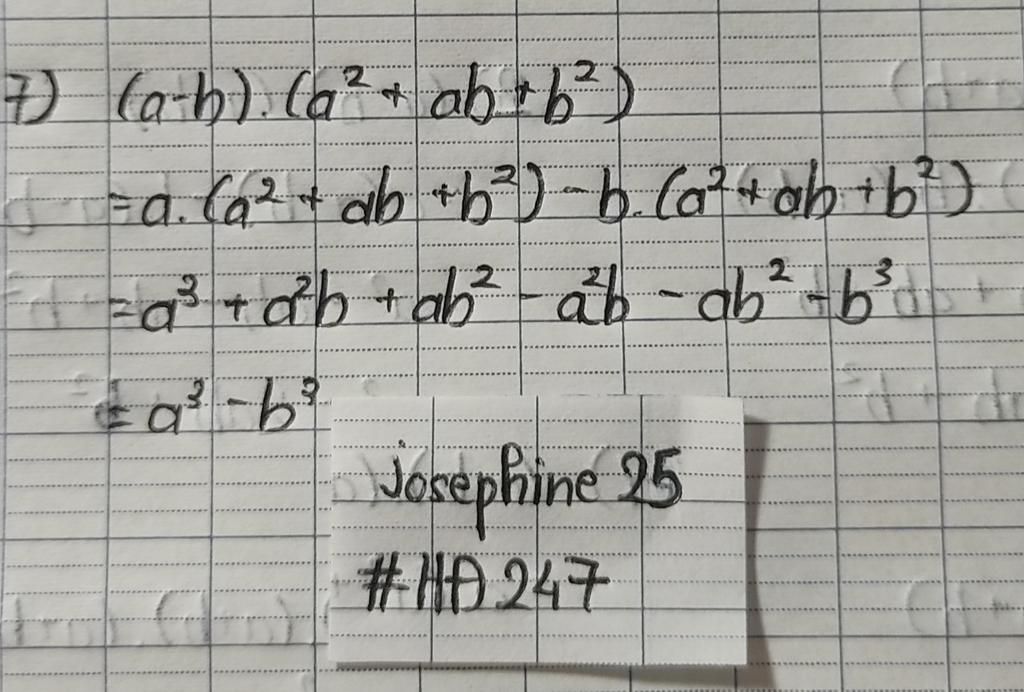 7) (a-b).(a² + ab + b²)
= a.(a² + ab + b²) - b.(a² + ab + b²)
= a³ + a²b + ab² - a²b - ab² - b³
= a³ - b³
Josephine 25
#HA247